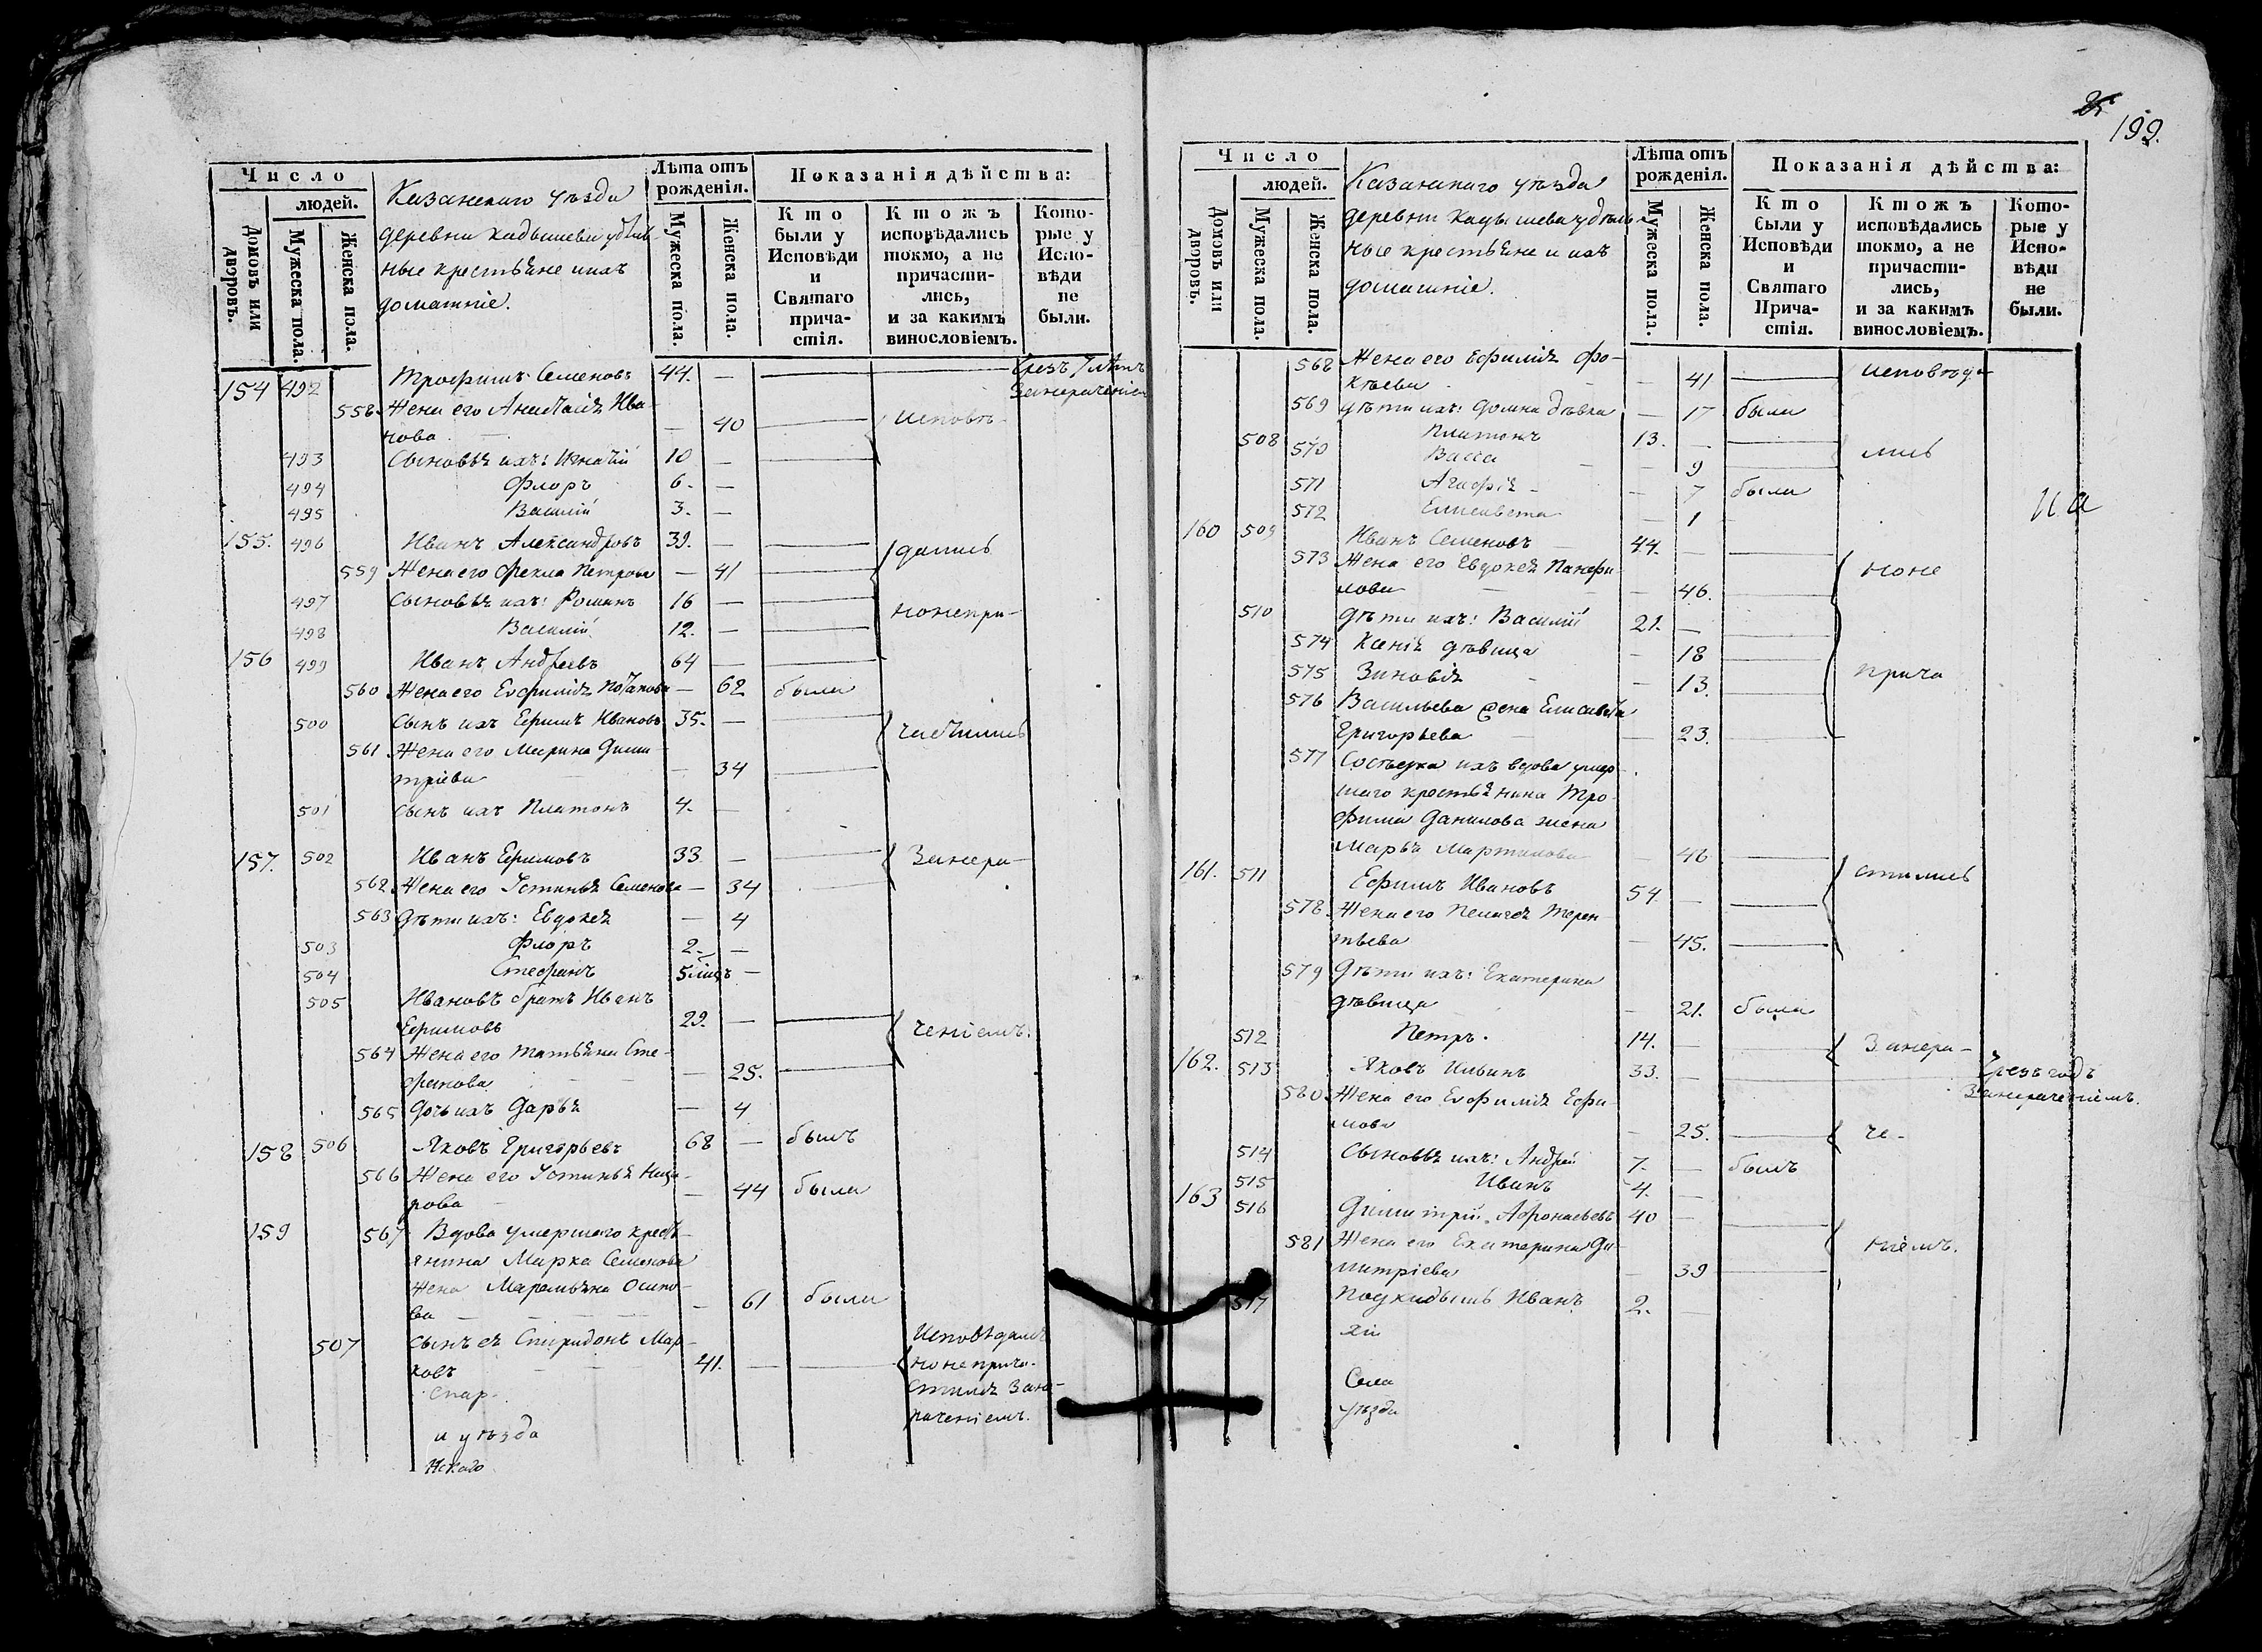 Число
людей.
Домовъ или дворовъ.
Мужеска пола.
Женска пола.
Казанскаго уѣзда
деревни Кадышева удѣль-
ные крестьяне и ихъ
домашніе.
Лѣта отъ
рожденія.
Мужеска пола.
Женска пола.
Показанія дѣйства:
Кто
были у
Исповѣди
и
Святаго
прича-
стія.
Ктожъ
исповѣдались
токмо, а не
причасти-
лись,
и за какимъ
винословіемъ.
Кото-
рые у
Испо-
вѣди
не
были.
154 492 Трофимъ Семеновъ 44. —
занераченіем
558 Жена его Анастасія Ива-
нова — 40 Исповѣ-
493 Сыновья ихъ: Игнатій 10 —
494 Флоръ 6. —
495 Василій 3. —
155. 496 Иванъ Александровъ 39. —
дались
559 Жена его Фекла Петрова — 41
497 Сыновья ихъ: Романъ 16 —
нонепри-
498 Василій 12. —
156 499 Иванъ Андреевъ 64 —
560 Жена его Евфимія Потапова — 62 была
500 Сынъ ихъ Ефимъ Ивановъ 35. —
частились
561 Жена его Марина Дими-
тріева — 34
501 сынъ ихъ Платонъ 4. —
157. 502 Иванъ Ефимовъ 33 — Занера-
562 Жена его Устинья Семенова — 34
563 Дѣти ихъ: Евдокея — 4
503 Флоръ 2. —
504 Стефанъ 5 мцъ —
505 Ивановъ братъ Иванъ
Ефимовъ 29. —
ченіемъ.
564 Жена его Татьяна Сте-
фанова — 25.
565 Дочь ихъ Дарья — 4
158 506 Яковъ Григорьевъ 68 — былъ
566 Жена его Устинья Наза-
рова — 44 была
159 567 Вдова умершаго кресть-
янина Марка Семенова
Жена Маремьяна Осипо-
ва — 61 была
507 Сынъ ея Спиридонъ Мар-
ковъ 41. —
Исповѣдался
но не прича-
стился Зане-
раченіемъ.
Спар-
и уѣзда
нскаго
25
199.
Число
людей.
Домовъ или дворовъ.
Мужеска пола.
Женска пола.
Казанскаго уѣзда
деревни Кадышева удѣль-
ные крестьяне и ихъ
домашніе.
Лѣта отъ
рожденія.
Мужеска пола.
Женска пола.
Показанія дѣйства:
Кто
были у
Исповѣди
и
Святаго
Прича-
стія.
Ктожъ
исповѣдались
токмо, а не
причасти-
лись,
и за какимъ
винословіемъ.
Кото-
рые у
Испо-
вѣди
не
были.
568 Жена его Евфимія Фо-
кѣева — 41 исповѣда-
569 дѣти ихъ: Домна дѣвка — 17 была
508 Платонъ 13. —
лись
570 Васса — 9
571 Агафія — 7 была
572 Елисавета — 1
160 509 Иванъ Семеновъ 44. —
573 Жена его Евдокея Панфи-
лова — 46.
ноне
510 дѣти ихъ: Василій 21. —
574 Ксенія дѣвица — 18
575 Зиновія — 13.
прича
576 Васильева жена Елисавета
Григорьева — 23.
577 Сосѣдка ихъ вдова умер-
шаго крестьянина Тро-
фима Данилова жена
Марья Мартинова 46
161. 511 Ефимъ Ивановъ 54. —
стились
578 Жена его Пелагея Терен-
тьева — 45.
579 Дѣти ихъ: Екатерина
дѣвица — 21. была
512 Петръ. 14. — Занера-
162. 513 Яковъ Ильинъ 33. —
Чрезъ годъ
Занераченіемъ.
580 Жена его Евфимія Ефи-
мова — 25. че-
514 Сыновья ихъ: Андрей 7. — былъ
515 Иванъ 4. —
163 516 Димитрій Афонасьевъ 40 —
581 Жена его Екатерина Ди-
митріева — 39
ніемъ.
517 Подкидышъ Иванъ 2.
Села
уѣзда